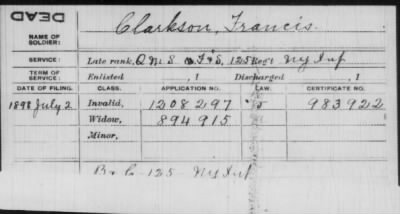 DEAD
NAME OF SOLDIER: Clarkson, Francis.
SERVICE: Late rank, Q M S F & S, 125 Reg't N Y Inf
TERM OF SERVICE: Enlisted , 1 Discharged , 1
DATE OF FILING. CLASS. APPLICATION NO. LAW. CERTIFICATE NO.
1898 July 2 Invalid, 1208297 983922
Widow, 894915
Minor,
125 N Y Inf